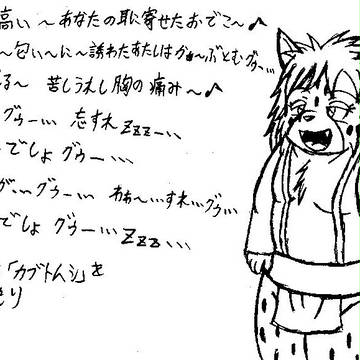 高い〜あなたの耳に寄せたおでこ〜♪
〜匂い〜に〜誘われたわたしはかぁ〜ぶとむグゥー…
る〜 苦しうれし胸の痛み〜♪
グゥー… 忘すれZzz−…
でしょ グゥー…
が…グゥー… わぁ〜…すれ…グゥ…
でしょ グゥー… Zzz…
「カブトムシ」を
きり